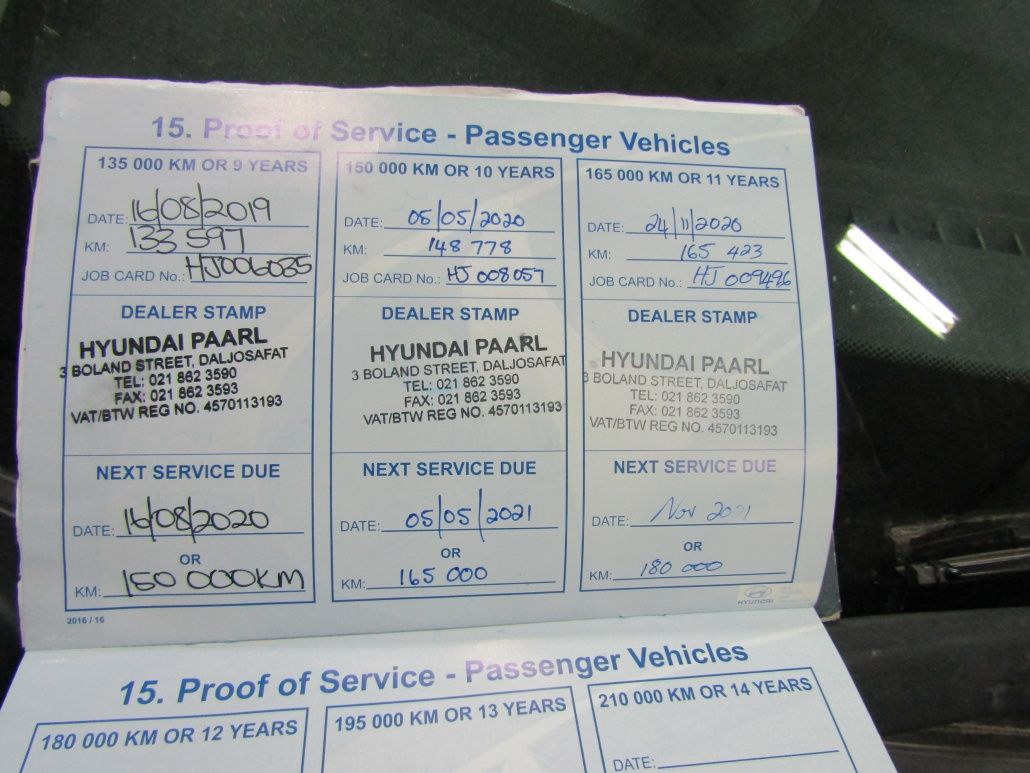 15. Proof of Service - Passenger Vehicles
135 000 KM OR 9 YEARS
DATE: 16/08/2019
KM: 133 597
JOB CARD No.: HJ006035
DEALER STAMP
HYUNDAI PAARL
3 BOLAND STREET, DALJOSAFAT
TEL: 021 862 3590
FAX: 021 862 3593
VAT/BTW REG NO. 4570113193
NEXT SERVICE DUE
DATE: 16/08/2020
OR
KM: 150 000KM
150 000 KM OR 10 YEARS
DATE: 05/05/2020
KM: 148 778
JOB CARD No.: HJ 008057
DEALER STAMP
HYUNDAI PAARL
3 BOLAND STREET, DALJOSAFAT
TEL: 021 862 3590
FAX: 021 862 3593
VAT/BTW REG NO. 4570113193
NEXT SERVICE DUE
DATE: 05/05/2021
OR
KM: 165 000
165 000 KM OR 11 YEARS
DATE: 24/11/2020
KM: 165 423
JOB CARD No.: HJ 009496
DEALER STAMP
HYUNDAI PAARL
3 BOLAND STREET, DALJOSAFAT
TEL: 021 862 3590
FAX: 021 862 3593
VAT/BTW REG NO. 4570113193
NEXT SERVICE DUE
DATE: Nov 2021
OR
KM: 180 000
HYUNDAI
2016 / 16
15. Proof of Service - Passenger Vehicles
180 000 KM OR 12 YEARS
195 000 KM OR 13 YEARS
210 000 KM OR 14 YEARS
DATE: